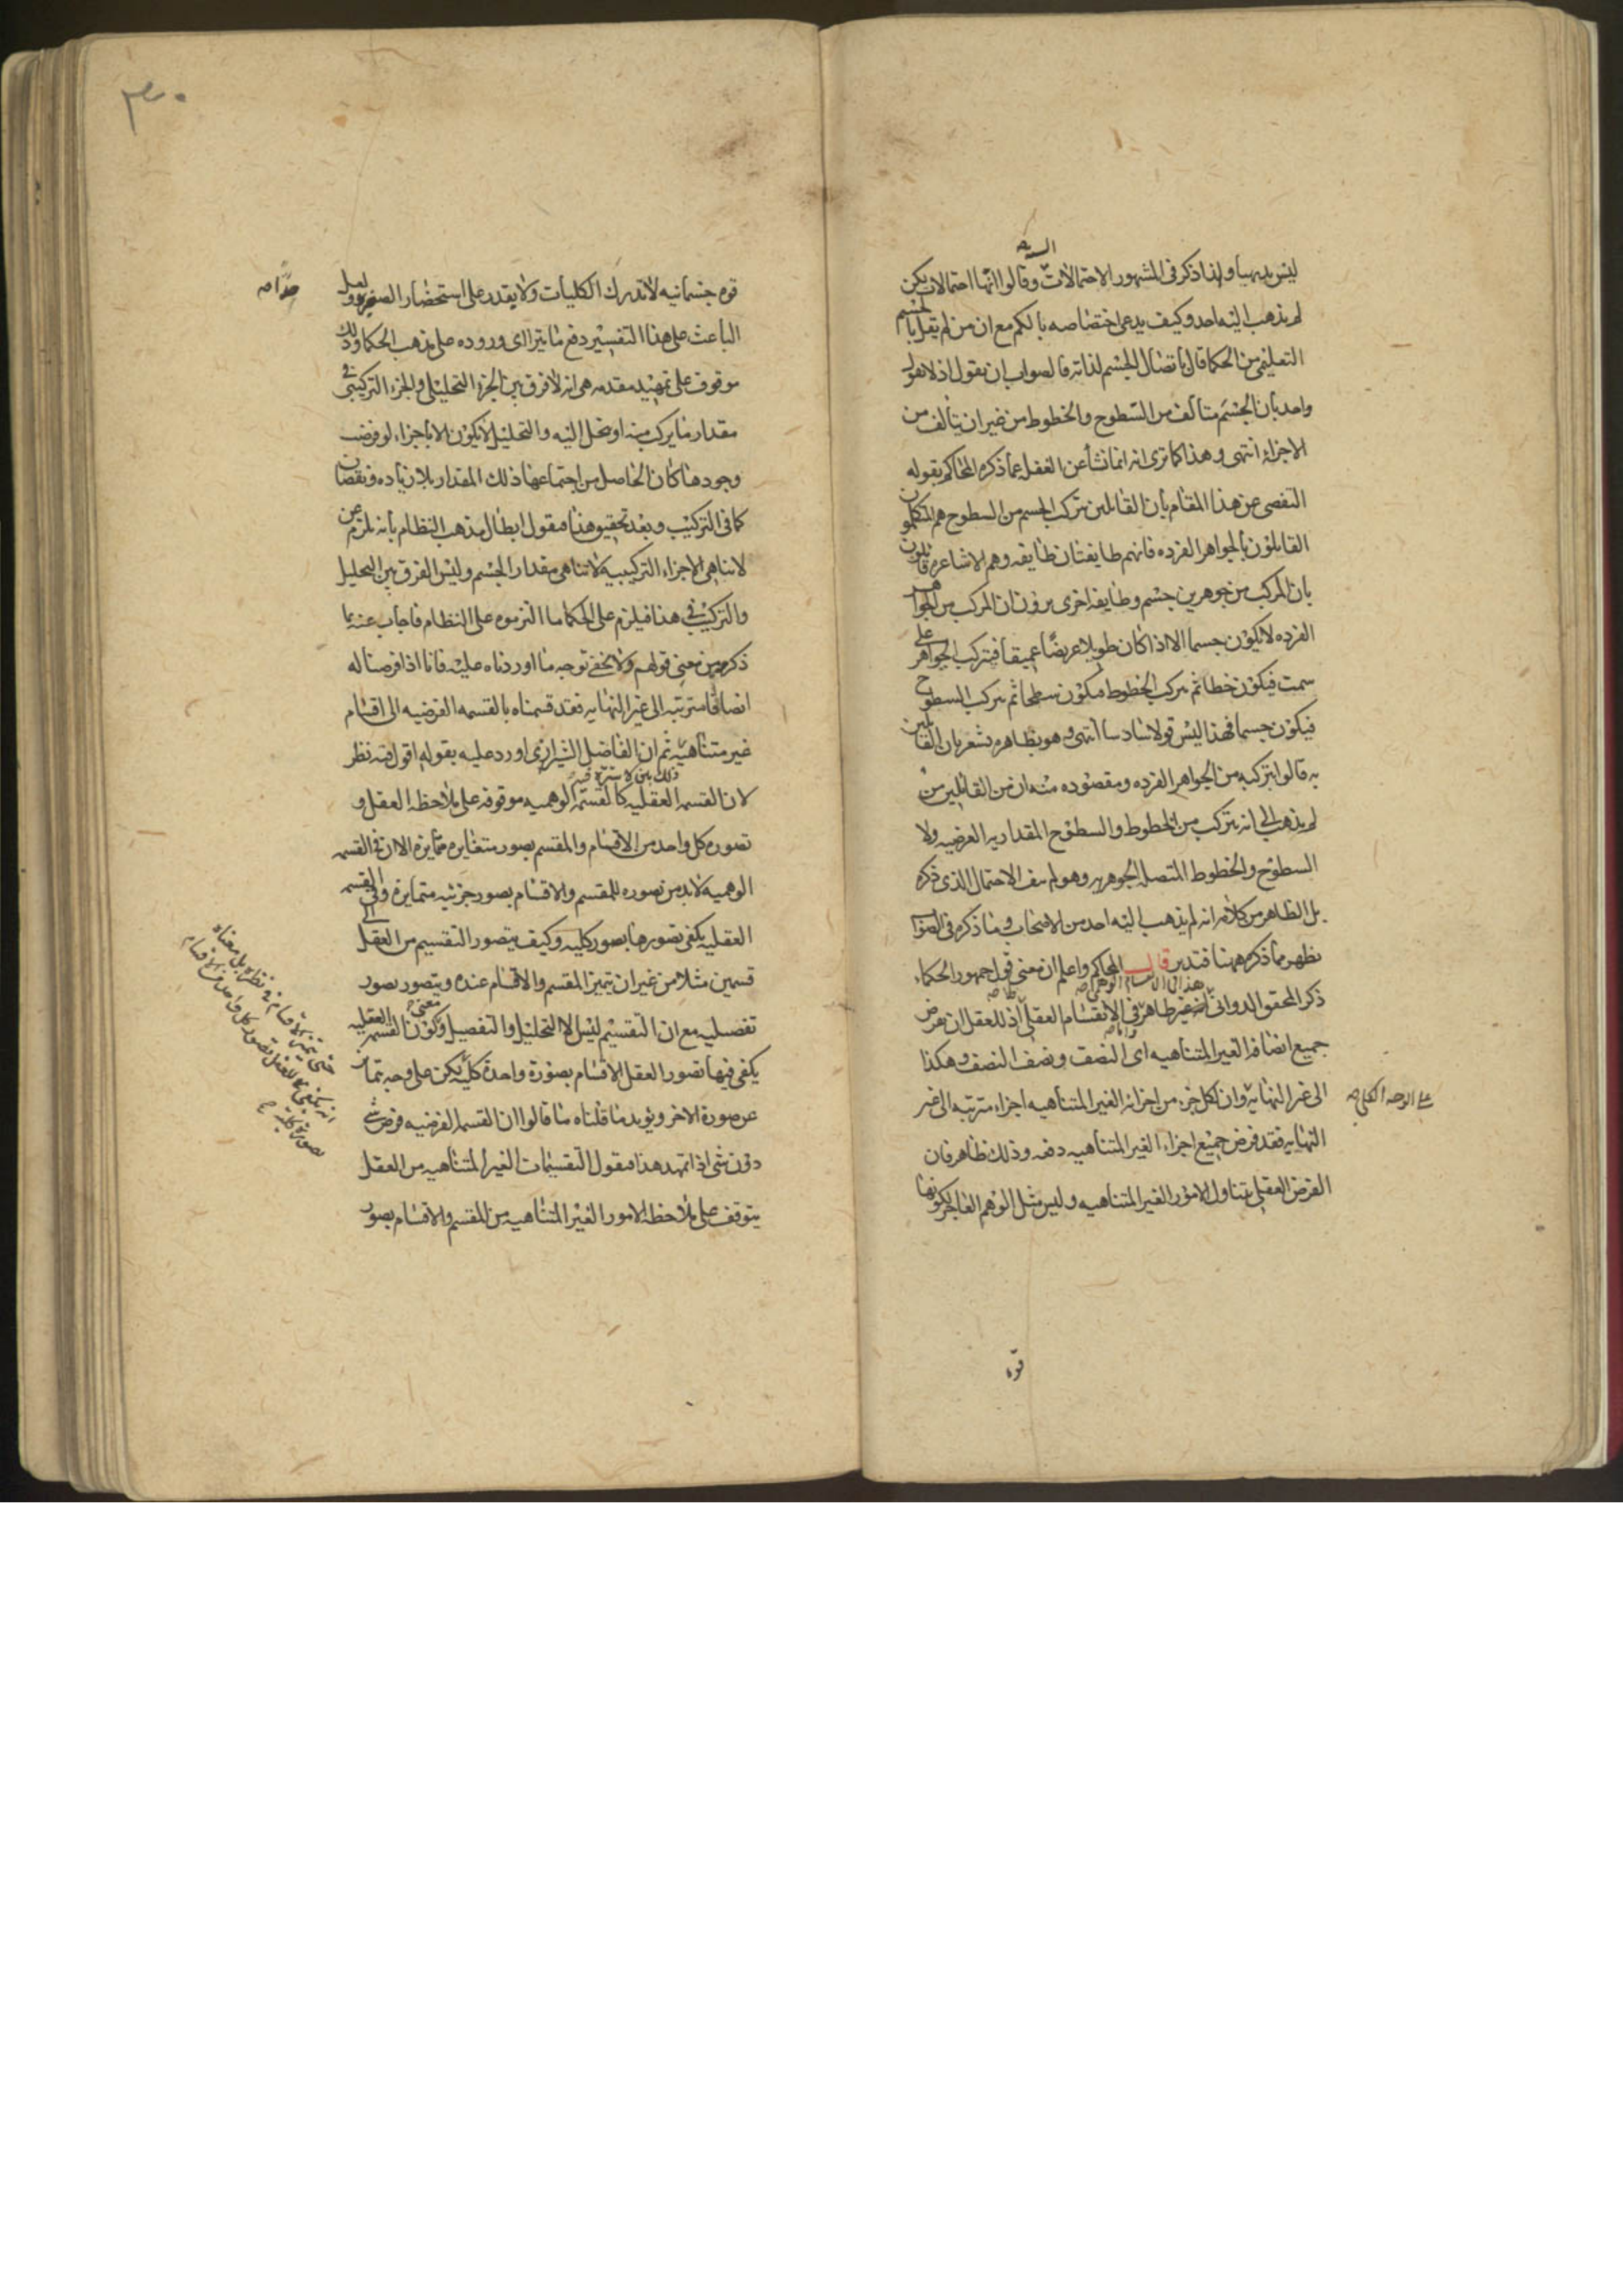 الستة
ليس بديهيا ولهذا ذكر فى المشهور الاحتمالات وقالوا انها احتمالات يمكن
لم يذهب اليه احد وكيف يدعى اختصاصه بالحكم مع ان من لم يقل بالجسم
التعليمى من الحكما قال باتصال الجسم لذاته فالصواب ان يقول اذ لا يقول
واحد بان الجسم متالف من السطوح والخطوط من غير ان يتألف من
الاجزاء انتهى وهذا كما ترى انه انما نشأ عن الغفل عما ذكره المحاكم بقوله
التفصى عن هذا المقام بان القائلين بتركب الجسم من السطوح هم المتكلمون
القايلون بالجواهر الفرده فانهم طايفتان طايفه وهم الاشاعره قايلون
بان المركب من جوهرين جسم وطايفه اخرى يرون ان المركب من الجواهر
الفرده لا يكون جسما الا اذا كان طويلا عريضا عميقا فيتركب الجواهر على
سمت فيكون خطا ثم يتركب الخطوط فيكون سطحا ثم يتركب السطوح
فيكون جسما فهذا ليس قولا سادسا انتهى وهو بظاهره يشعر بان القايلين
به قالوا بتركبه من الجواهر الفرده ومقصوده منه ان من القائلين من
لم يذهب الى انه يتركب من الخطوط والسطوح المقداريه العرضيه ولا
السطوح والخطوط المتصله الجوهريه وهو لم ينف الاحتمال الذى ذكره
بل الظاهر من كلامه انه لم يذهب اليه احد من الاصحاب وما ذكره فى الصواب
يظهر ما ذكره ههنا فتدبر قال المحاكم واعلم ان معنى قول جمهور الحكماء
هذا فى الانقسام الوهمى
ذكر المحقق الدوانى غير ظاهر فى الانقسام العقلى اذ للعقل ان يفرض
جميع انصافه الغير المتناهيه اى النصف ونصف النصف وهكذا
الى غير النهايه وان لكل جزء من اجزائه الغير المتناهيه اجزاء مترتبه الى غير
على الوجه الكلى صح
النهايه فقد فرض جميع اجزاء الغير المتناهيه دفعه وذلك ظاهر فان
الفرض العقلى يتناول الامور الغير المتناهيه وليس مثل الوهم العاجز لكونها
قوه
٣٠
قوه جسمانيه لا تدرك الكليات ولا يقدر على استحضار الصغيره ولعل
جدا صح
الباعث على هذا التفسير دفع ما يترااى وروده على مذهب الحكما وذلك
موقوف على تمهيد مقدمه هى انه لا فرق بين الجزء التحليلى والجزء التركيبى فى
مقدار ما يركب منه او ينحل اليه والتحليل لا يكون الا باجزاء لو فرض
وجودها كان الحاصل من اجتماعها ذلك المقدار بلا زياده ونقصان
كما فى التركيب وبعد تحقيق هذا فنقول ابطال مذهب النظام بانه يلزم عن
لا تناهى الاجزاء التركيبيه لا تناهى مقدار الجسم وليس الفرق بين التحليل
والتركيب فى هذا فيلزم على الحكما ما الزموه على النظام فاجاب عنه بما
ذكره من معنى قولهم ولا يخفى توجه ما اوردناه عليه فانا اذا فرضنا له
انصافا مترتبه الى غير النهايه فقد قسمناه بالقسمه الفرضيه الى اقسام
غير متناهيه ثم ان الفاضل الشيرازى اورد عليه بقوله اقول فيه نظر
لان القسمه العقليه كالقسمه الوهميه موقوفه على ملاحظه العقل و
تصوره كل واحد من الاقسام والمقسم بصور متغايره متمايزه الا ان فى القسمه
الوهميه لا بد من تصوره للمقسم والاقسام بصور جزئيه متمايزه وفى القسمه
العقليه يكفى تصورها بصور كليه وكيف يتصور التقسيم من العقل الى
قسمين مثلا من غير ان يتميز المقسم والاقسام عنده ويتصور بصور
تفصيليه مع ان التقسيم ليس الا التحليل والتفصيل وكون معنى القسمه العقليه
يكفى فيها تصور العقل الاقسام بصورة واحدة كليه يكن على وجه تمايز
عن صورة الاخر ويؤيد ما قلناه ما قالوا ان القسمه الفرضيه فرض شئ
دون شئ اذا تمهد هذا فنقول التقسيمات الغير المتناهيه من العقل
يتوقف على ملاحظه الامور الغير المتناهيه من المقسم والاقسام بصور
حتى يتميز الاقسام فى نظره بل معناه
انه يكفى للعقل تصور كل واحد من الاقسام
بصورة كليه صح